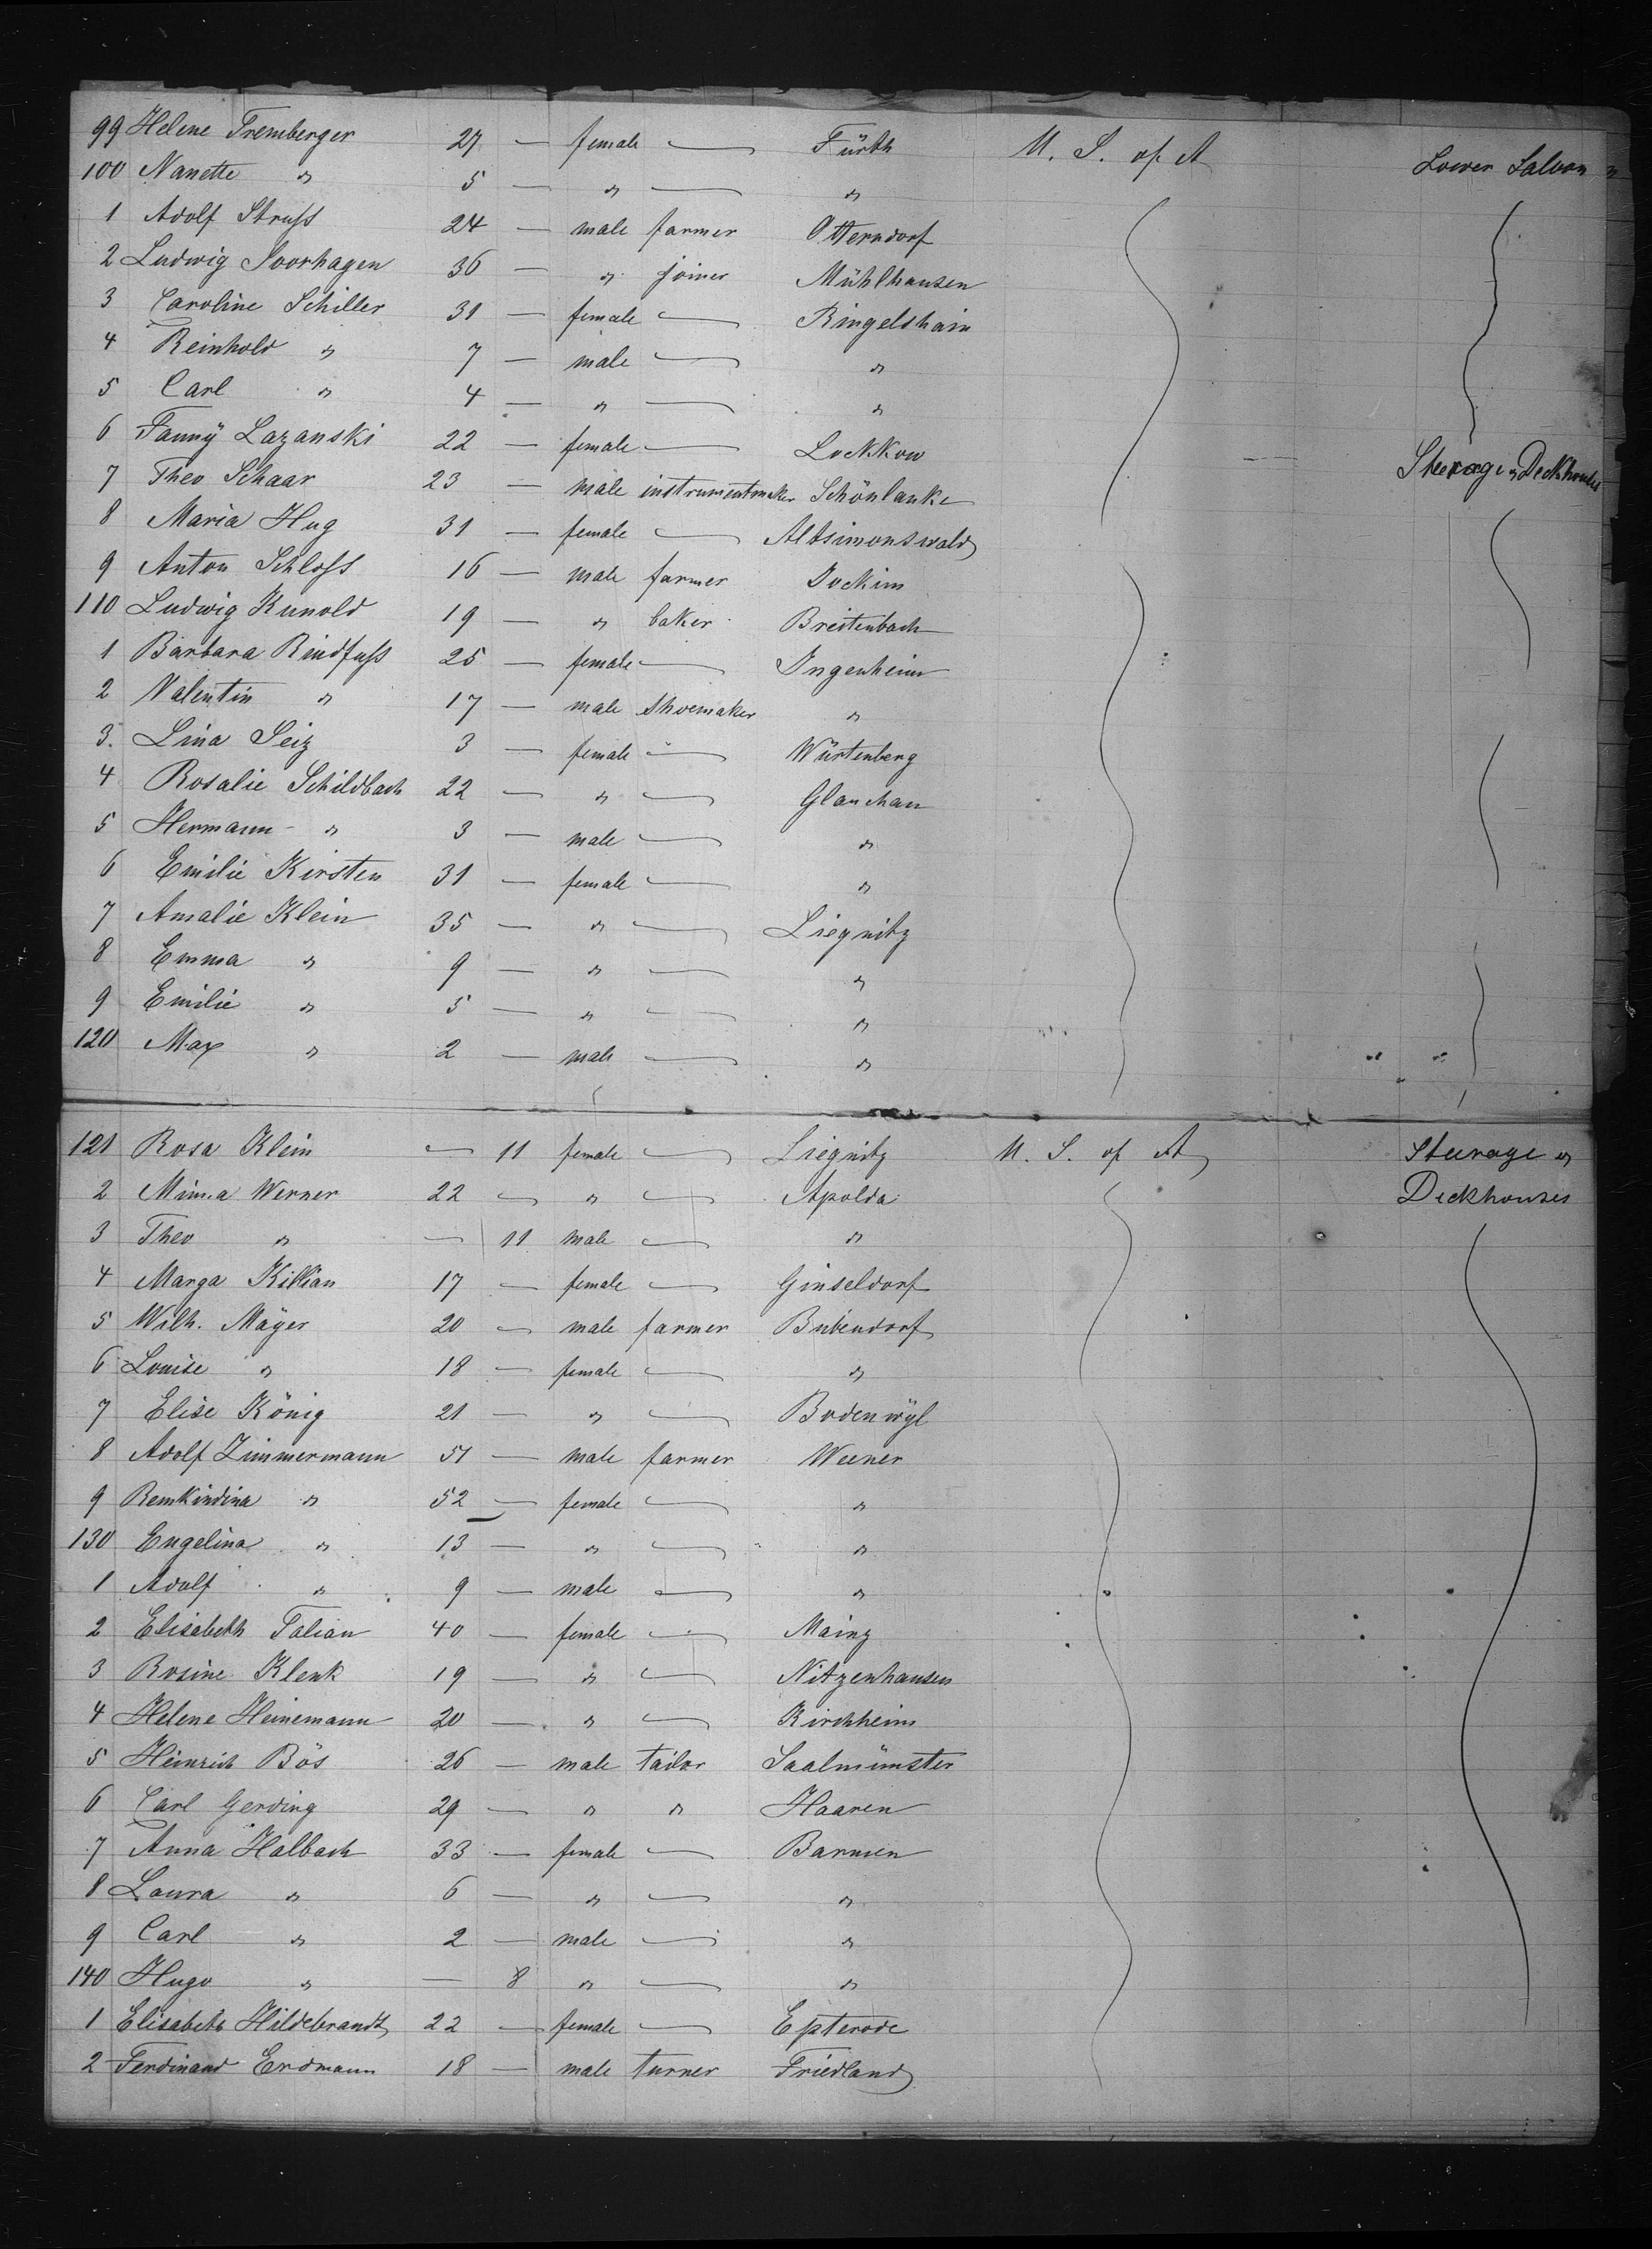 99 Helene Tremberger 27 — female — Fürth U. S. of A Lower Saloon
100 Nanette " 5 — " — "
1 Adolf Struß 24 — male farmer Otterndorf
2 Ludwig Soorhagen 36 — " joiner Mühlhausen
3 Caroline Schiller 31 — female — Ringelshain
4 Reinhold " 7 — male — "
5 Carl " 4 — " — "
6 Fanny Lazanski 22 — female — Lockkow
7 Theo Schaar 23 — male instrumentmaker Schönlanke Steerage & Deckhouses
8 Maria Hug 31 — female — Altsimonswald
9 Anton Schloß 16 — male farmer Jockim
110 Ludwig Kunold 19 — " baker Breitenbach
1 Barbara Rindfuß 25 — female — Ingenheim
2 Valentin " 17 — male shoemaker "
3. Lina Seiz 3 — female — Würtenberg
4 Rosalie Schildbach 22 — " — Glauchau
5 Hermann " 3 — male — "
6 Emilie Kirsten 31 — female — "
7 Amalie Klein 35 — " — Liegnitz
8 Emma " 9 — " — "
9 Emilie " 5 — " — "
120 Max " 2 — male — "
121 Rosa Klein — 11 female — Liegnitz U. S. of A Steerage &
2 Minna Werner 22 — " — Apolda Deckhouses
3 Theo " — 11 male — "
4 Marga Killian 17 — female — Ginseldorf
5 Wilh. Mäyer 20 — male farmer Bubendorf
6 Louise " 18 — female — "
7 Elise König 21 — " — Bodenwyl
8 Adolf Zimmermann 51 — male farmer Weener
9 Remkindina " 52 — female — "
130 Engelina " 13 — " — "
1 Adolf " 9 — male — "
2 Elisabeth Talian 40 — female — Mainz
3 Rosine Klenk 19 — " — Nitzenhausen
4 Helene Heinemann 20 — " — Kirchheim
5 Heinrich Bös 26 — male tailor Saalmünster
6 Carl Gerding 29 — " " Haaren
7 Anna Halbach 33 — female — Barmen
8 Laura " 6 — " — "
9 Carl " 2 — male — "
140 Hugo " — 8 " — "
1 Elisabeth Hildebrandt 22 — female — Epterode
2 Ferdinand Erdmann 18 — male turner Friedland